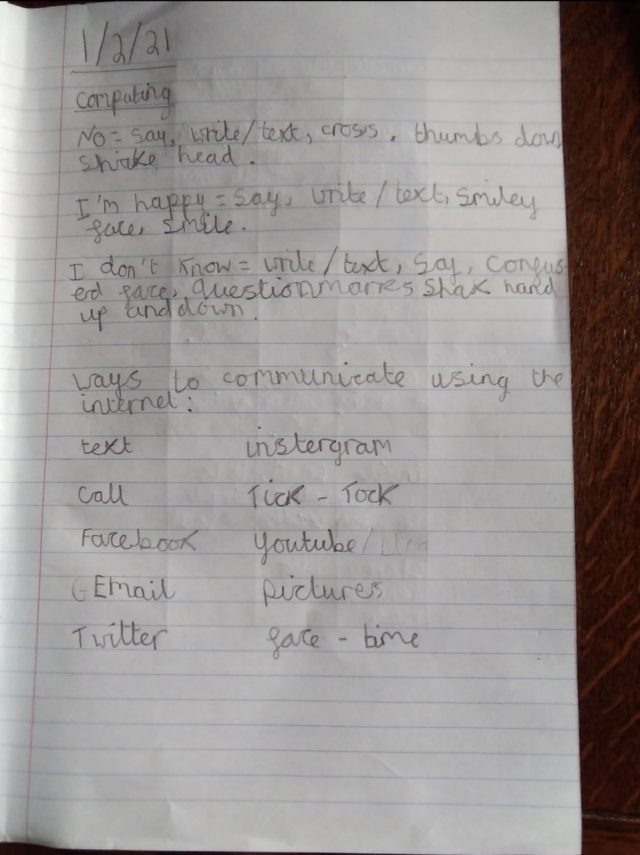 1/2/21
Computing
No = say, write/text, cross, thumbs down
shake head.
I'm happy = say, write/text, smiley
face, smile.
I don't know = write/text, say, confus
ed face, questionmarkes shak hand
up and down.
ways to communicate using the
internet:
text instergram
call Tick - Tock
Facebook Youtube/
GEmail pictures
Twitter face - time